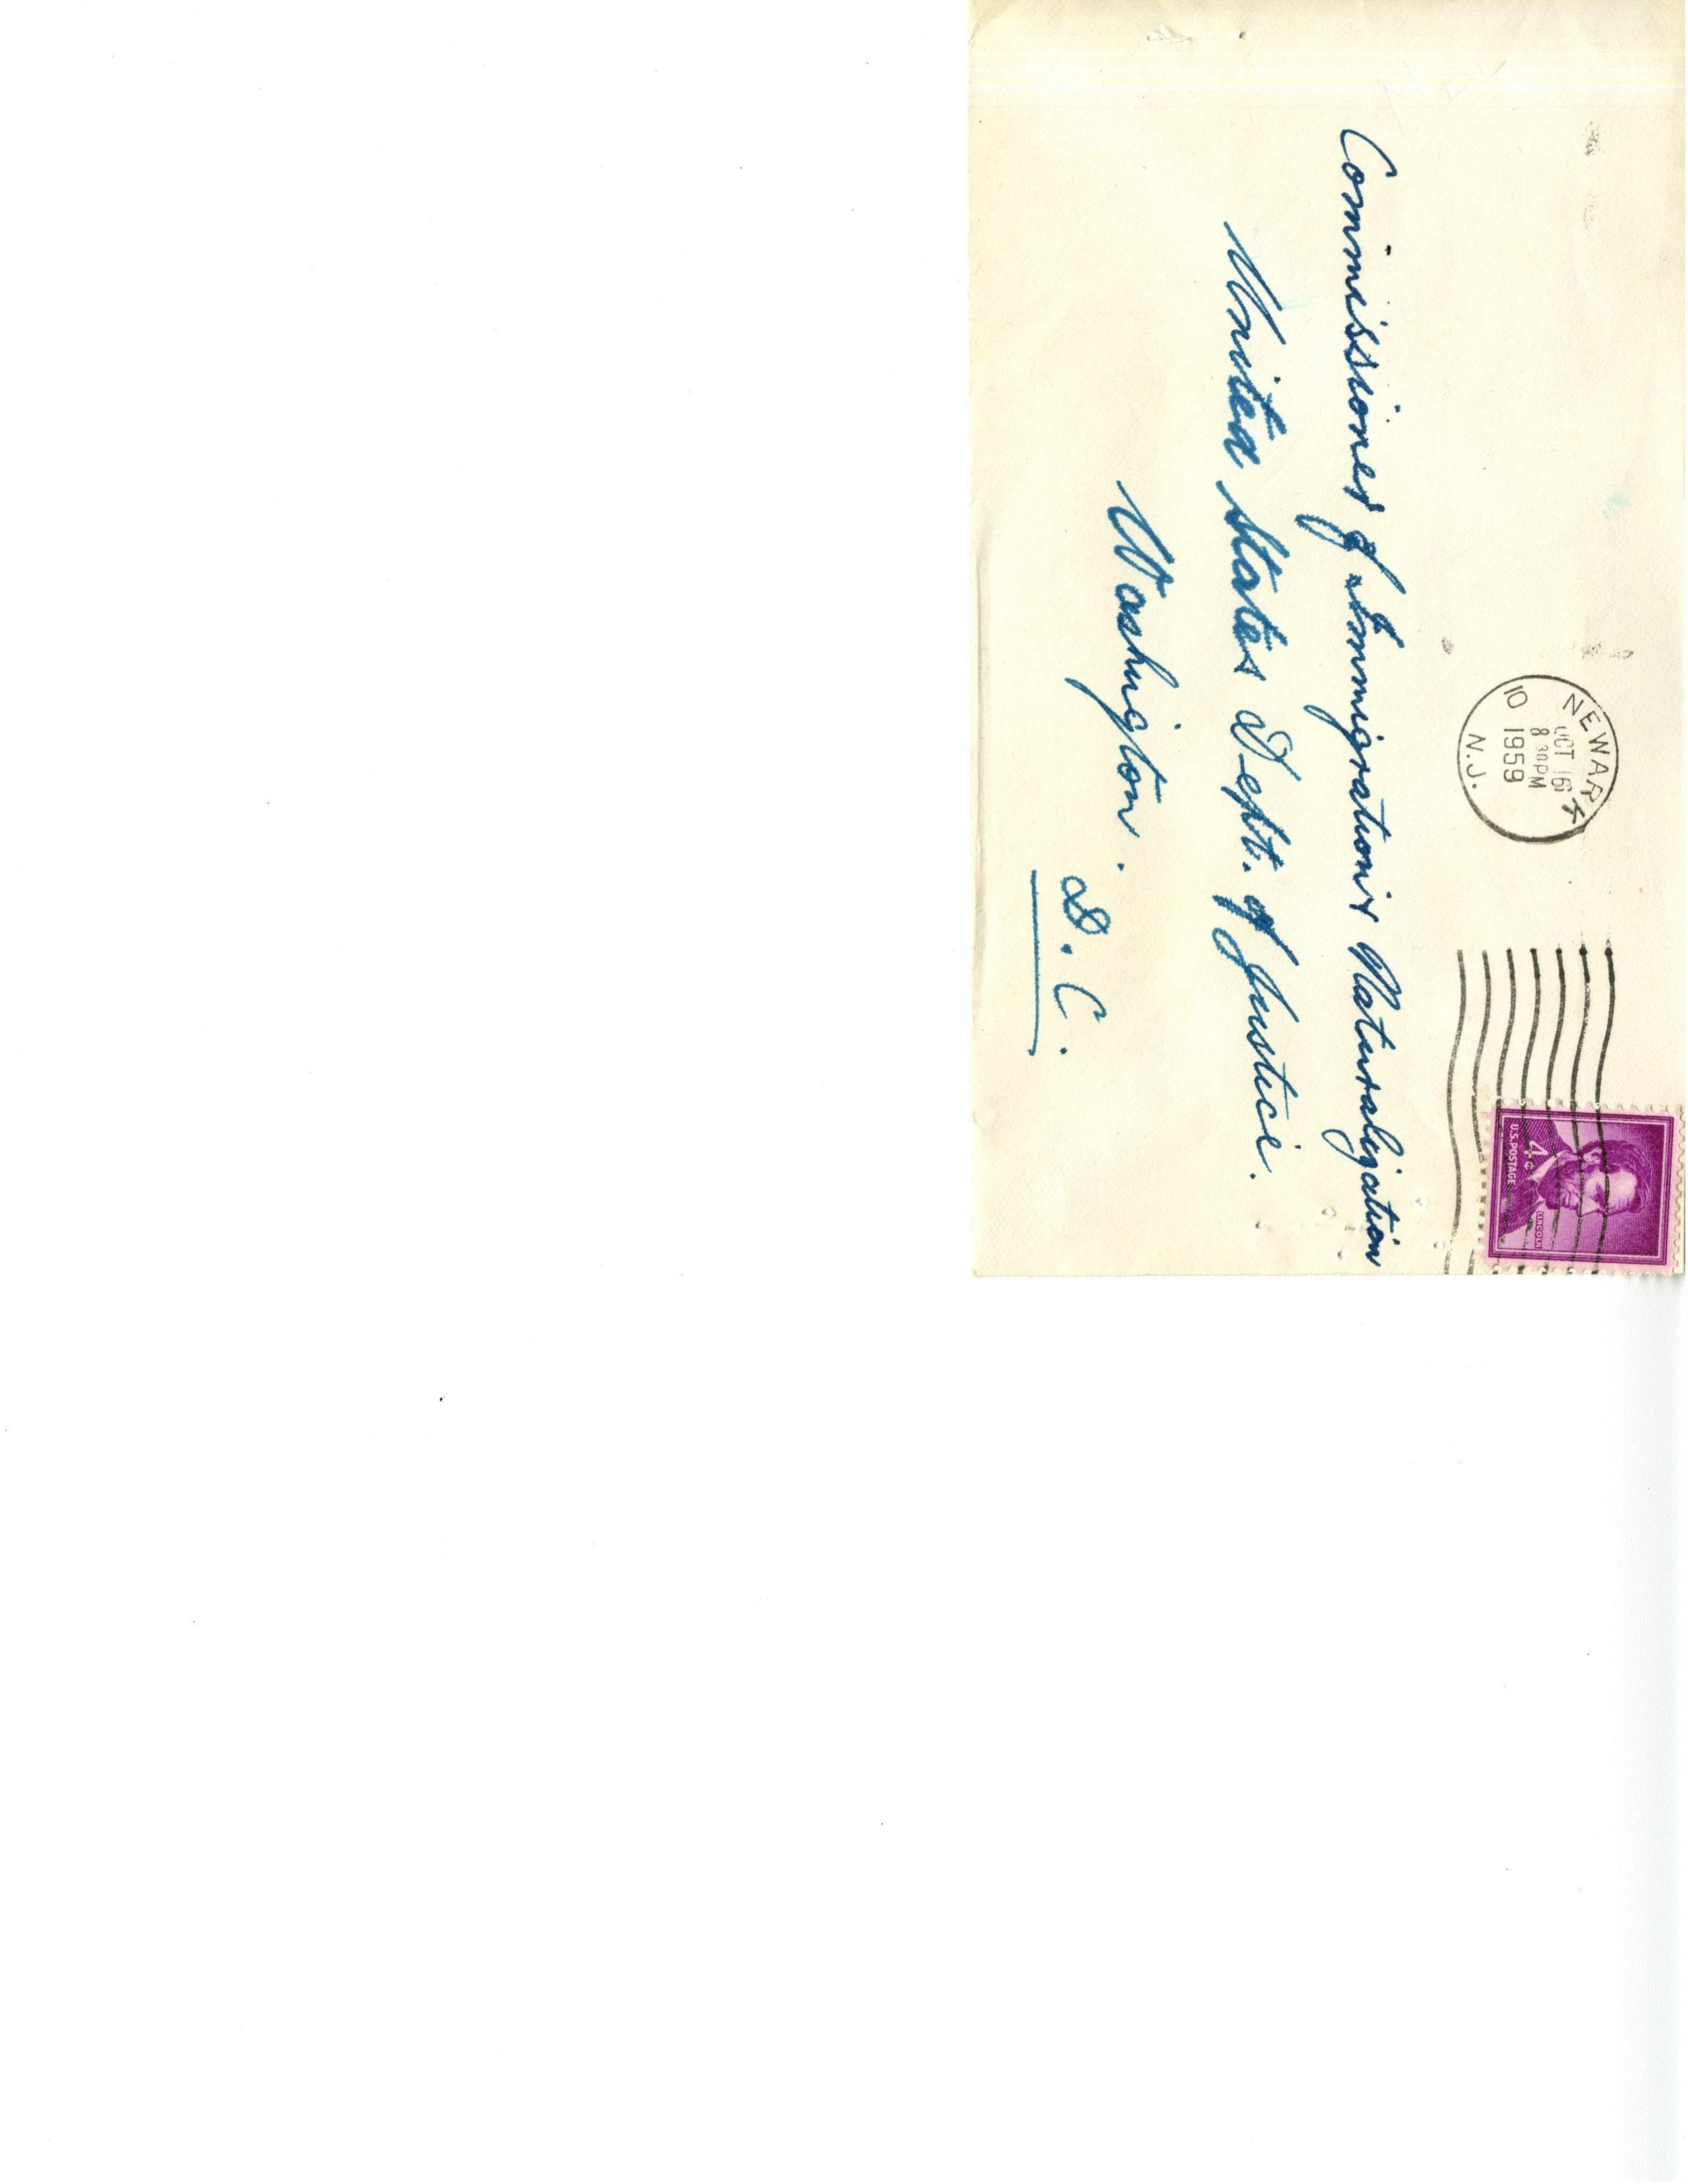 NEWARK
OCT 16
8 30 PM
1959
10
N.J.
4¢
LINCOLN
U.S. POSTAGE
Commissioner of Immigration & Naturalization
United States Dept. of Justice.
Washington.
D.C.